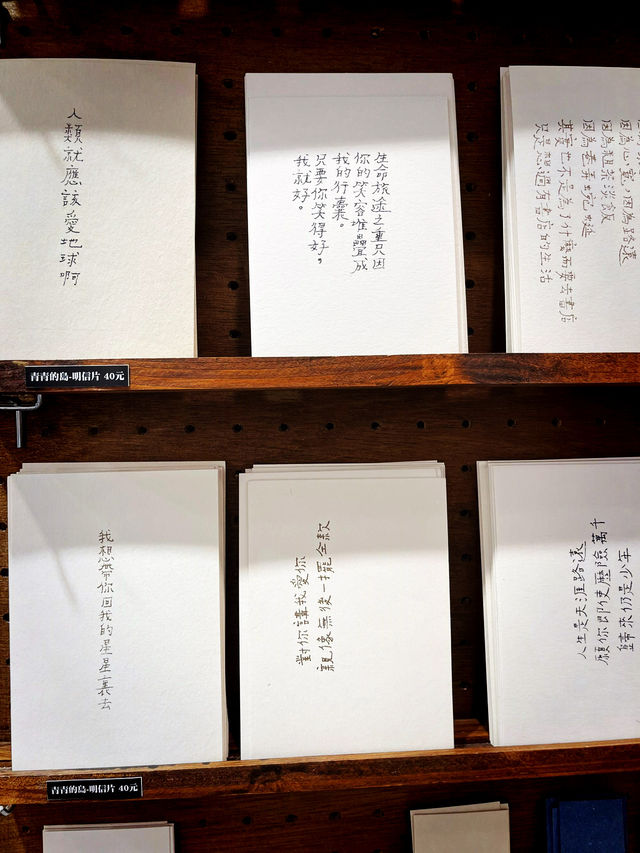 人類就應該愛地球啊
生命旅途之重只因
你的笑容堆疊成
我的行囊。
只要你笑得好。
我就好。
因為心寬,因為路遠
因為粗茶淡飯
因為巷弄蜿蜒
其實也不是為了什麼而要去書店
只是想過有書店的生活
青青的島-明信片 40元
我想帶你回我的星星裏去
對你講我愛你
親像無後一擺仝款
人生是天涯路遠
願你即使歷險萬千
歸來仍是少年
青青的島-明信片 40元